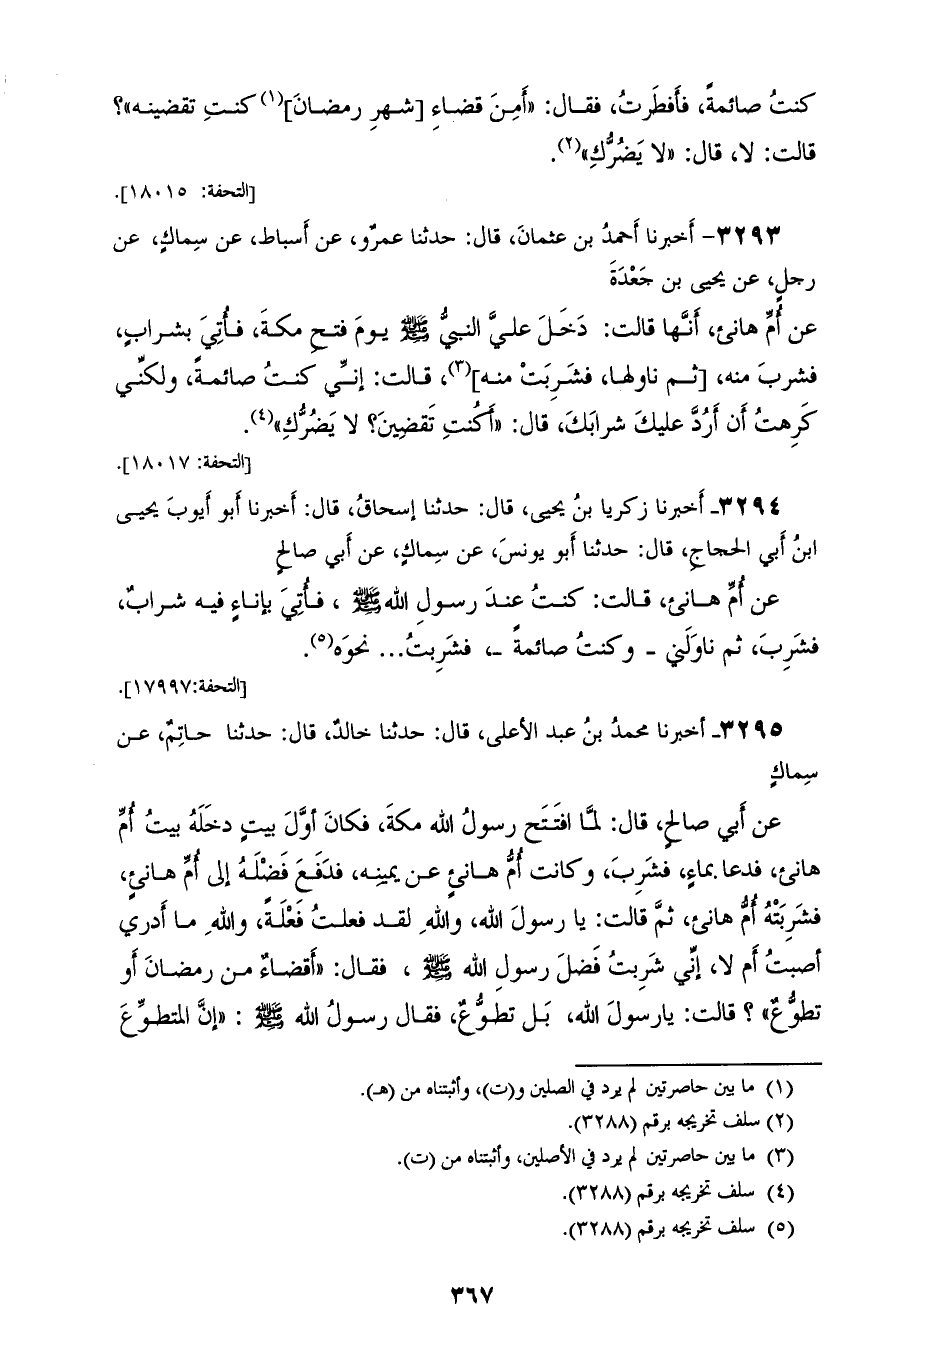 كنتُ صائمةً، فأفطَرتُ، فقال: «أَمِنَ قضاءِ [شهرِ رمضانَ](١) كنتِ تقضينه»؟
قالت: لا، قال: «لا يَضُرُّكِ»(٢).
[التحفة: ١٨٠١٥].
٣٢٩٣- أخبرنا أحمدُ بن عثمانَ، قال: حدثنا عمرٌو، عن أسباط، عن سِماكٍ، عن
رجلٍ، عن يحيى بن جَعْدَةَ
عن أُمِّ هانئ، أنَّها قالت: دَخَلَ عليَّ النبيُّ ﷺ يومَ فتحِ مكةَ، فأُتِيَ بشرابٍ،
فشربَ منه، [ثم ناولها، فشَرِبَتْ منه](٣)، قالت: إنِّي كنتُ صائمةً، ولكنِّي
كَرِهتُ أن أَرُدَّ عليكَ شرابَكَ، قال: «أَكُنتِ تَقضِينَ؟ لا يَضُرُّكِ»(٤).
[التحفة: ١٨٠١٧].
٣٢٩٤- أخبرنا زكريا بنُ يحيى، قال: حدثنا إسحاقُ، قال: أخبرنا أبو أيوبَ يحيى
ابنُ أبي الحجاجِ، قال: حدثنا أبو يونسَ، عن سِماكٍ، عن أبي صالحٍ
عن أُمِّ هانئ، قالت: كنتُ عندَ رسولِ اللهﷺ ، فأُتِيَ بإناءٍ فيه شرابٌ،
فشَرِبَ، ثم ناوَلَني - وكنتُ صائمةً -، فشَرِبتُ... نحوَه(٥).
[التحفة:١٧٩٩٧].
٣٢٩٥- أخبرنا محمدُ بنُ عبد الأعلى، قال: حدثنا خالدٌ، قال: حدثنا حاتِمٌ، عن
سِماكٍ
عن أبي صالحٍ، قال: لمَّا افتَتَح رسولُ الله مكةَ، فكانَ أوَّلَ بيتٍ دخَلَهُ بيتُ أُمِّ
هانئ، فدعا بماءٍ، فشَرِبَ، وكانت أُمُّ هانئٍ عن يمينِه، فدَفَعَ فَضْلَهُ إلى أُمِّ هانئٍ،
فشَرِبَتْهُ أُمُّ هانئ، ثمَّ قالت: يا رسولَ الله، واللهِ لقد فعلتُ فَعْلَةً، واللهِ ما أدري
أصبتُ أم لا، إنِّي شَرِبتُ فَضلَ رسولِ الله ﷺ ، فقال: «أقضاءٌ من رمضانَ أو
تطوُّعٌ» ؟ قالت: يارسولَ الله، بَل تطوُّعٌ، فقال رسولُ الله ﷺ : «إنَّ المتطوِّعَ
(١) ما بين حاصرتين لم يرد في الصلين و(ت)، وأثبتناه من (هـ).
(٢) سلف تخريجه برقم (٣٢٨٨).
(٣) ما بين حاصرتين لم يرد في الأصلين، وأثبتناه من (ت).
(٤) سلف تخريجه برقم (٣٢٨٨).
(٥) سلف تخريجه برقم (٣٢٨٨).
٣٦٧